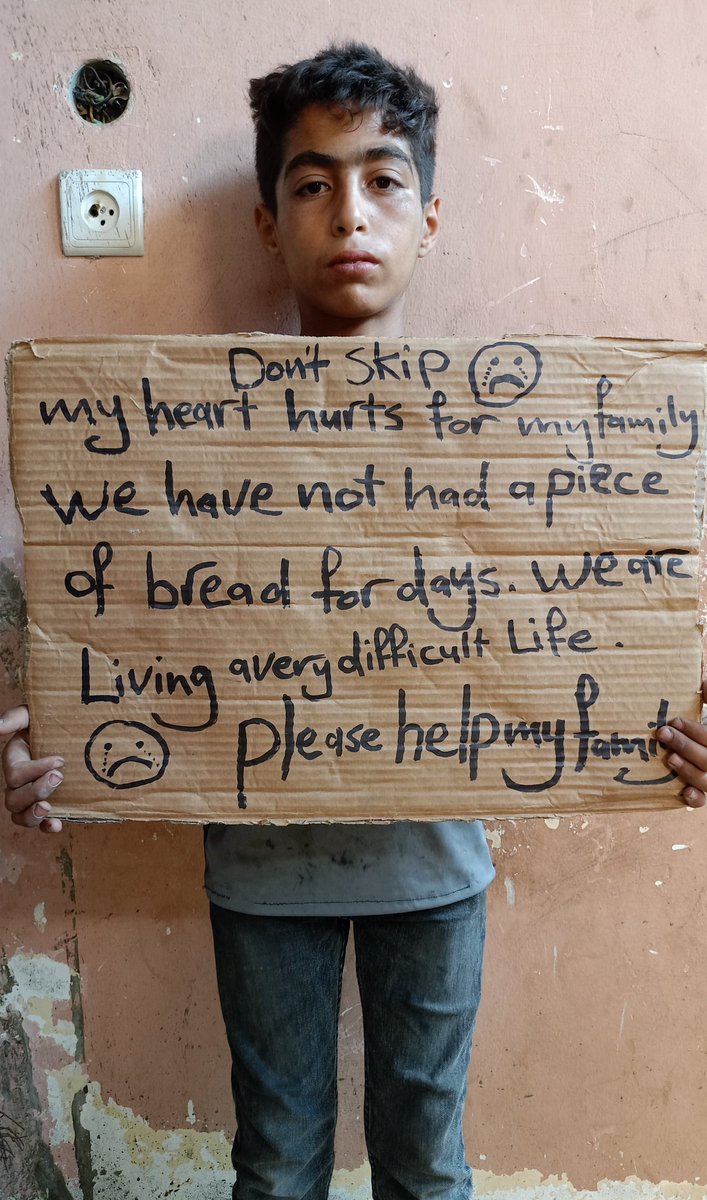 Don't Skip
my heart hurts for my family
we have not had a piece
of bread for days. we are
Living a very difficult Life.
please help my family